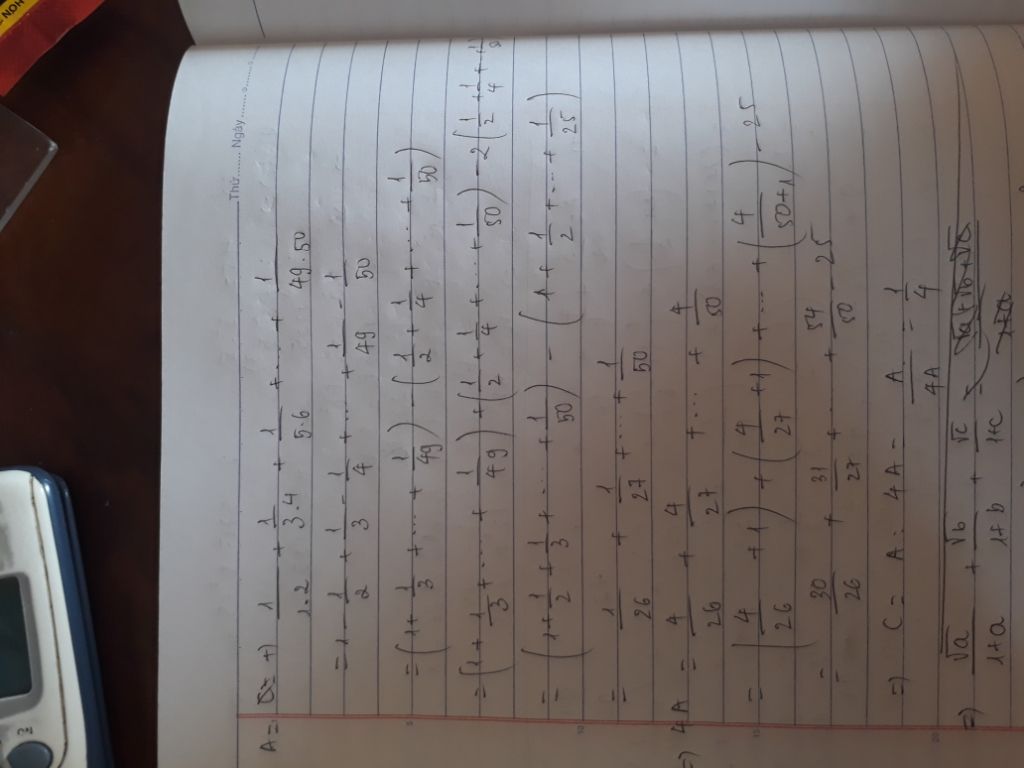 Thứ......... Ngày.........
A = +) 1/1.2 + 1/3.4 + 1/5.6 + ... + 1/49.50
= 1 - 1/2 + 1/3 - 1/4 + ... + 1/49 - 1/50
= (1 + 1/3 + ... + 1/49) - (1/2 + 1/4 + ... + 1/50)
= (1 + 1/3 + ... + 1/49) + (1/2 + 1/4 + ... + 1/50) - 2(1/2 + 1/4 + ...
= (1 + 1/2 + 1/3 + ... + 1/50) - (1 + 1/2 + ... + 1/25)
= 1/26 + 1/27 + ... + 1/50
=) 4A = 4/26 + 4/27 + ... + 4/50
= (4/26 + 1) + (4/27 + 1) + ... + (4/50 + 1) - 25
= 30/26 + 31/27 + ... + 54/50 - 25
=) C = A : 4A = A/4A = 1/4
=) √a/1+a + √b/1+b + √c/1+c